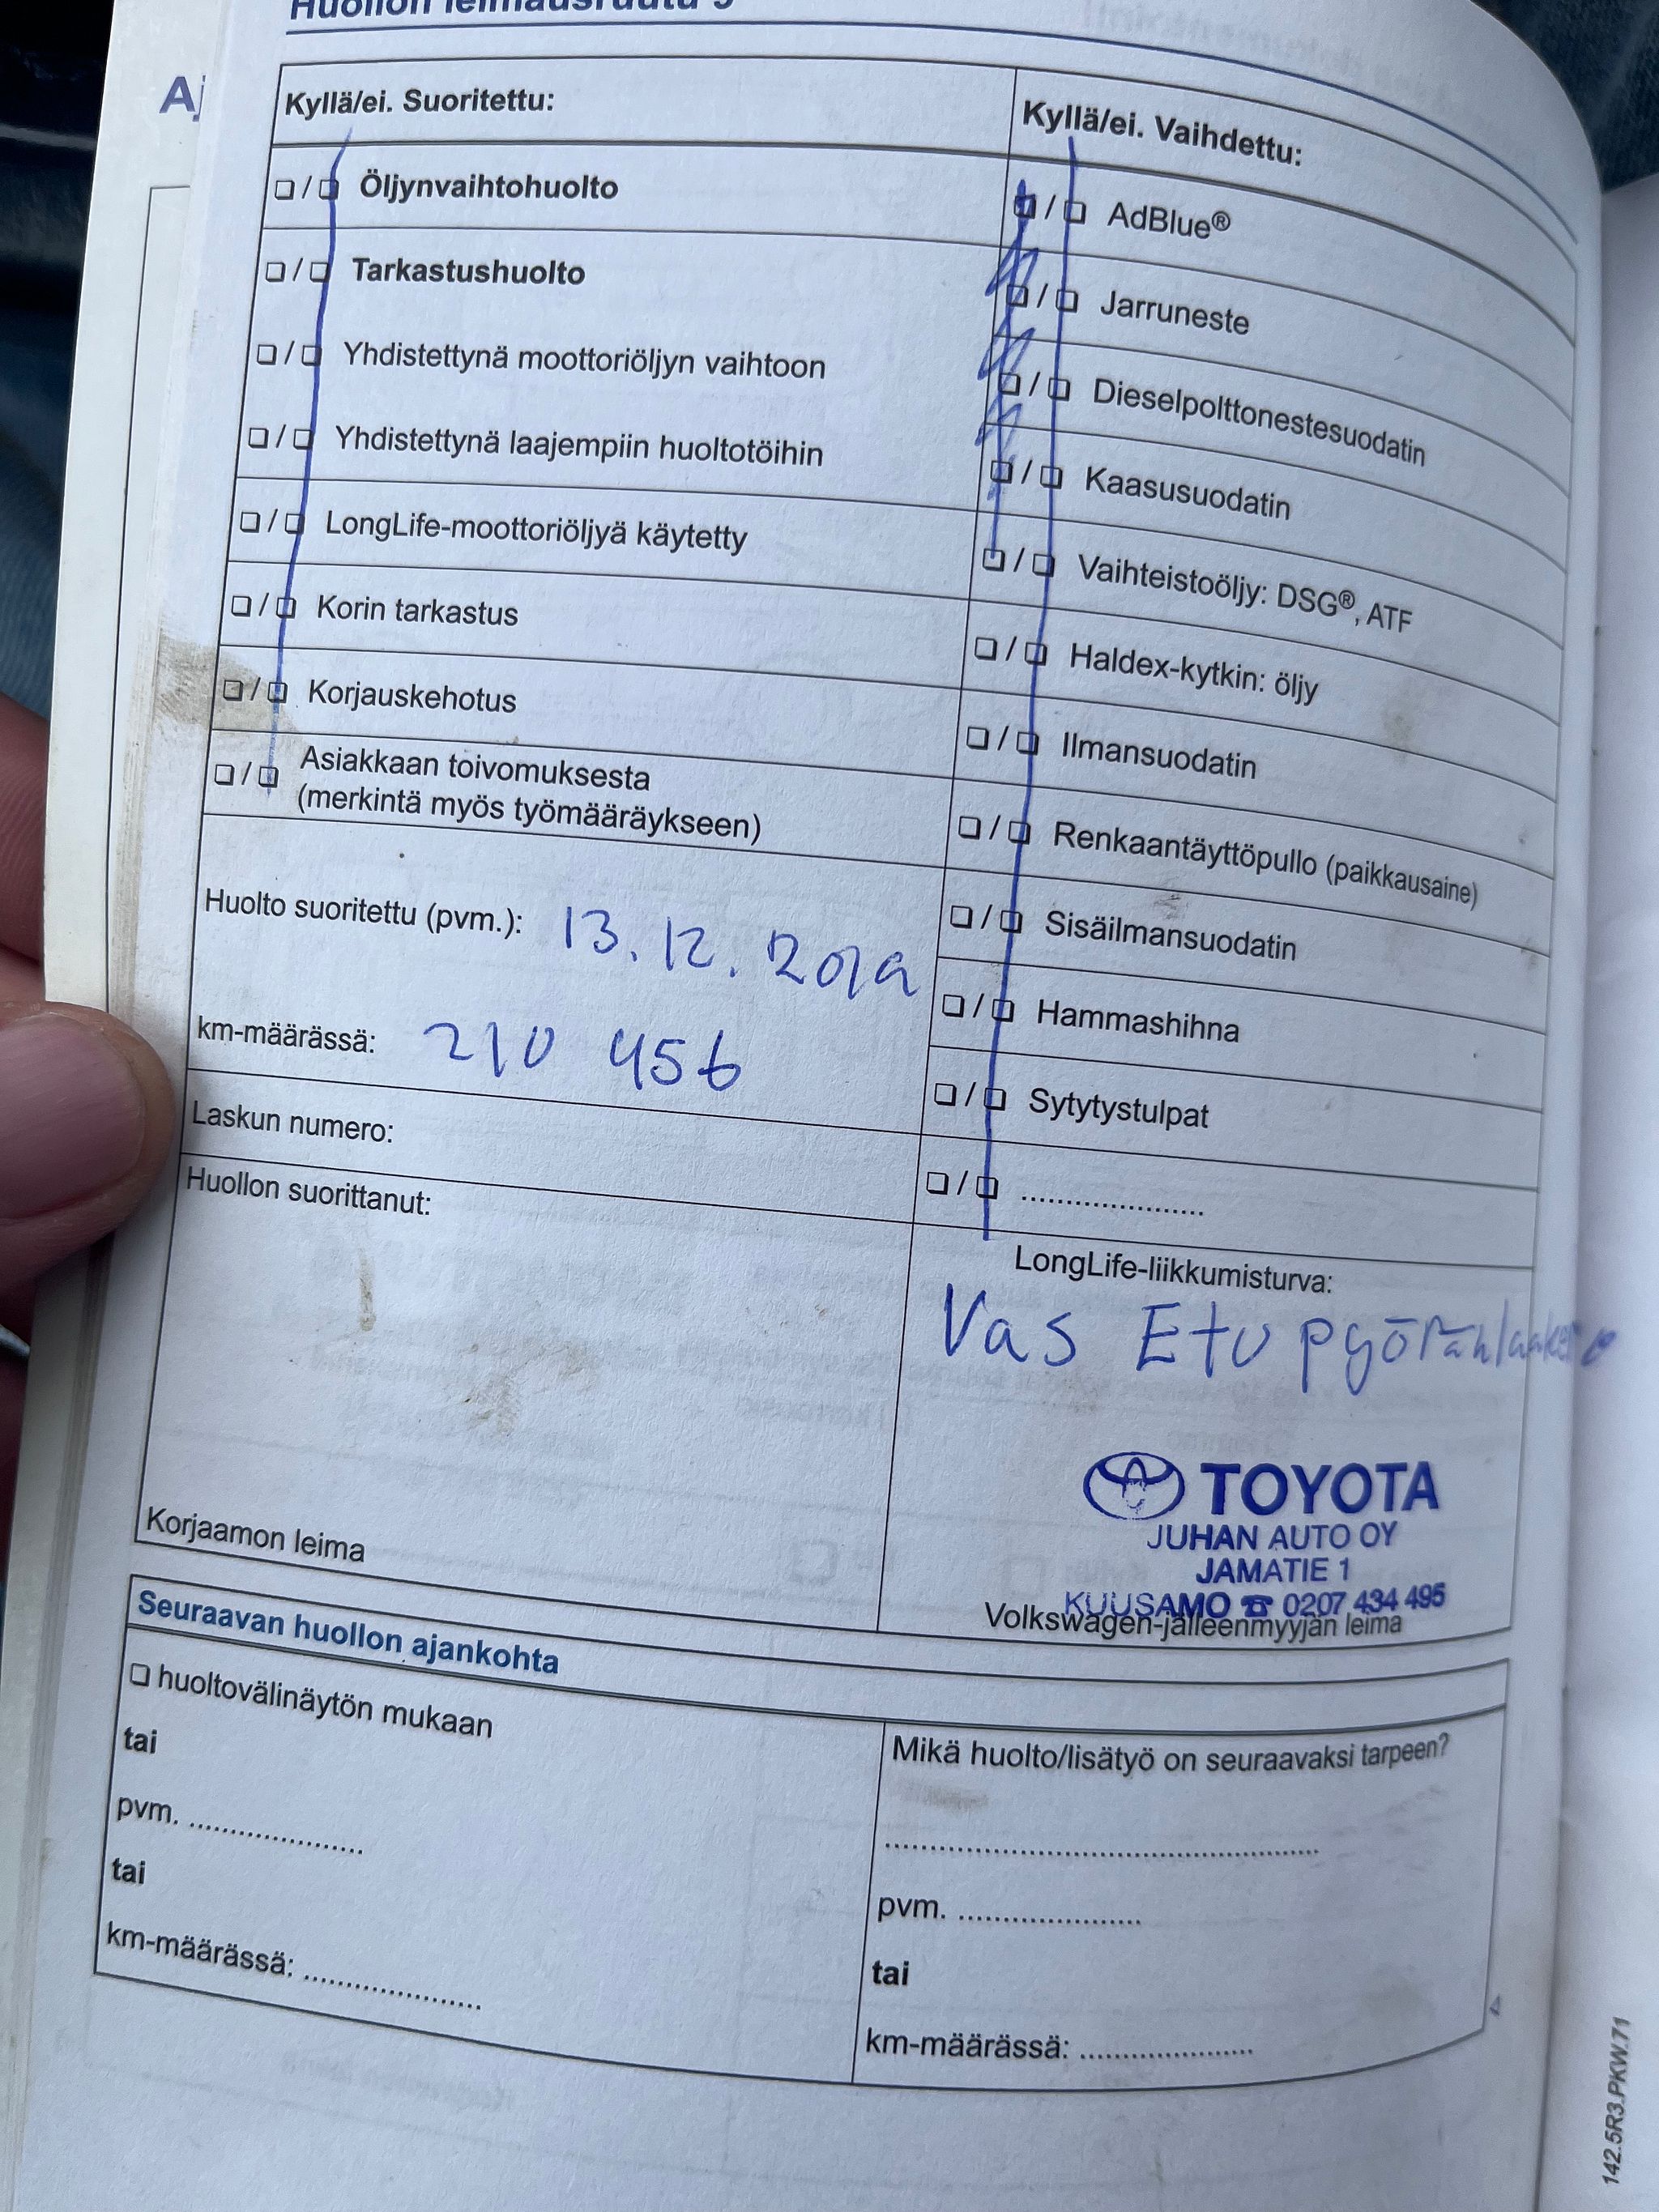 Huollon leimausruutu
Aj
Kyllä/ei. Suoritettu:
❏/❏ Öljynvaihtohuolto
❏/❏ Tarkastushuolto
❏/❏ Yhdistettynä moottoriöljyn vaihtoon
❏/❏ Yhdistettynä laajempiin huoltotöihin
❏/❏ LongLife-moottoriöljyä käytetty
❏/❏ Korin tarkastus
❏/❏ Korjauskehotus
❏/❏ Asiakkaan toivomuksesta
(merkintä myös työmääräykseen)
Huolto suoritettu (pvm.): 13.12.2019
km-määrässä: 210 456
Laskun numero:
Huollon suorittanut:
Korjaamon leima
Kyllä/ei. Vaihdettu:
❏/❏ AdBlue®
❏/❏ Jarruneste
❏/❏ Dieselpolttonestesuodatin
❏/❏ Kaasusuodatin
❏/❏ Vaihteistoöljy: DSG®, ATF
❏/❏ Haldex-kytkin: öljy
❏/❏ Ilmansuodatin
❏/❏ Renkaantäyttöpullo (paikkausaine)
❏/❏ Sisäilmansuodatin
❏/❏ Hammashihna
❏/❏ Sytytystulpat
❏/❏ .....................
LongLife-liikkumisturva:
Vas Etu
TOYOTA
JUHAN AUTO OY
JAMATIE 1
KUUSAMO ☎ 0207 434 495
Volkswagen-jälleenmyyjän leima
Seuraavan huollon ajankohta
❏ huoltovälinäytön mukaan
tai
pvm. .....................
tai
km-määrässä: .....................
Mikä huolto/lisätyö on seuraavaksi tarpeen?
.....................................................
pvm. .....................
tai
km-määrässä: .....................
142.5R3.PKW.71